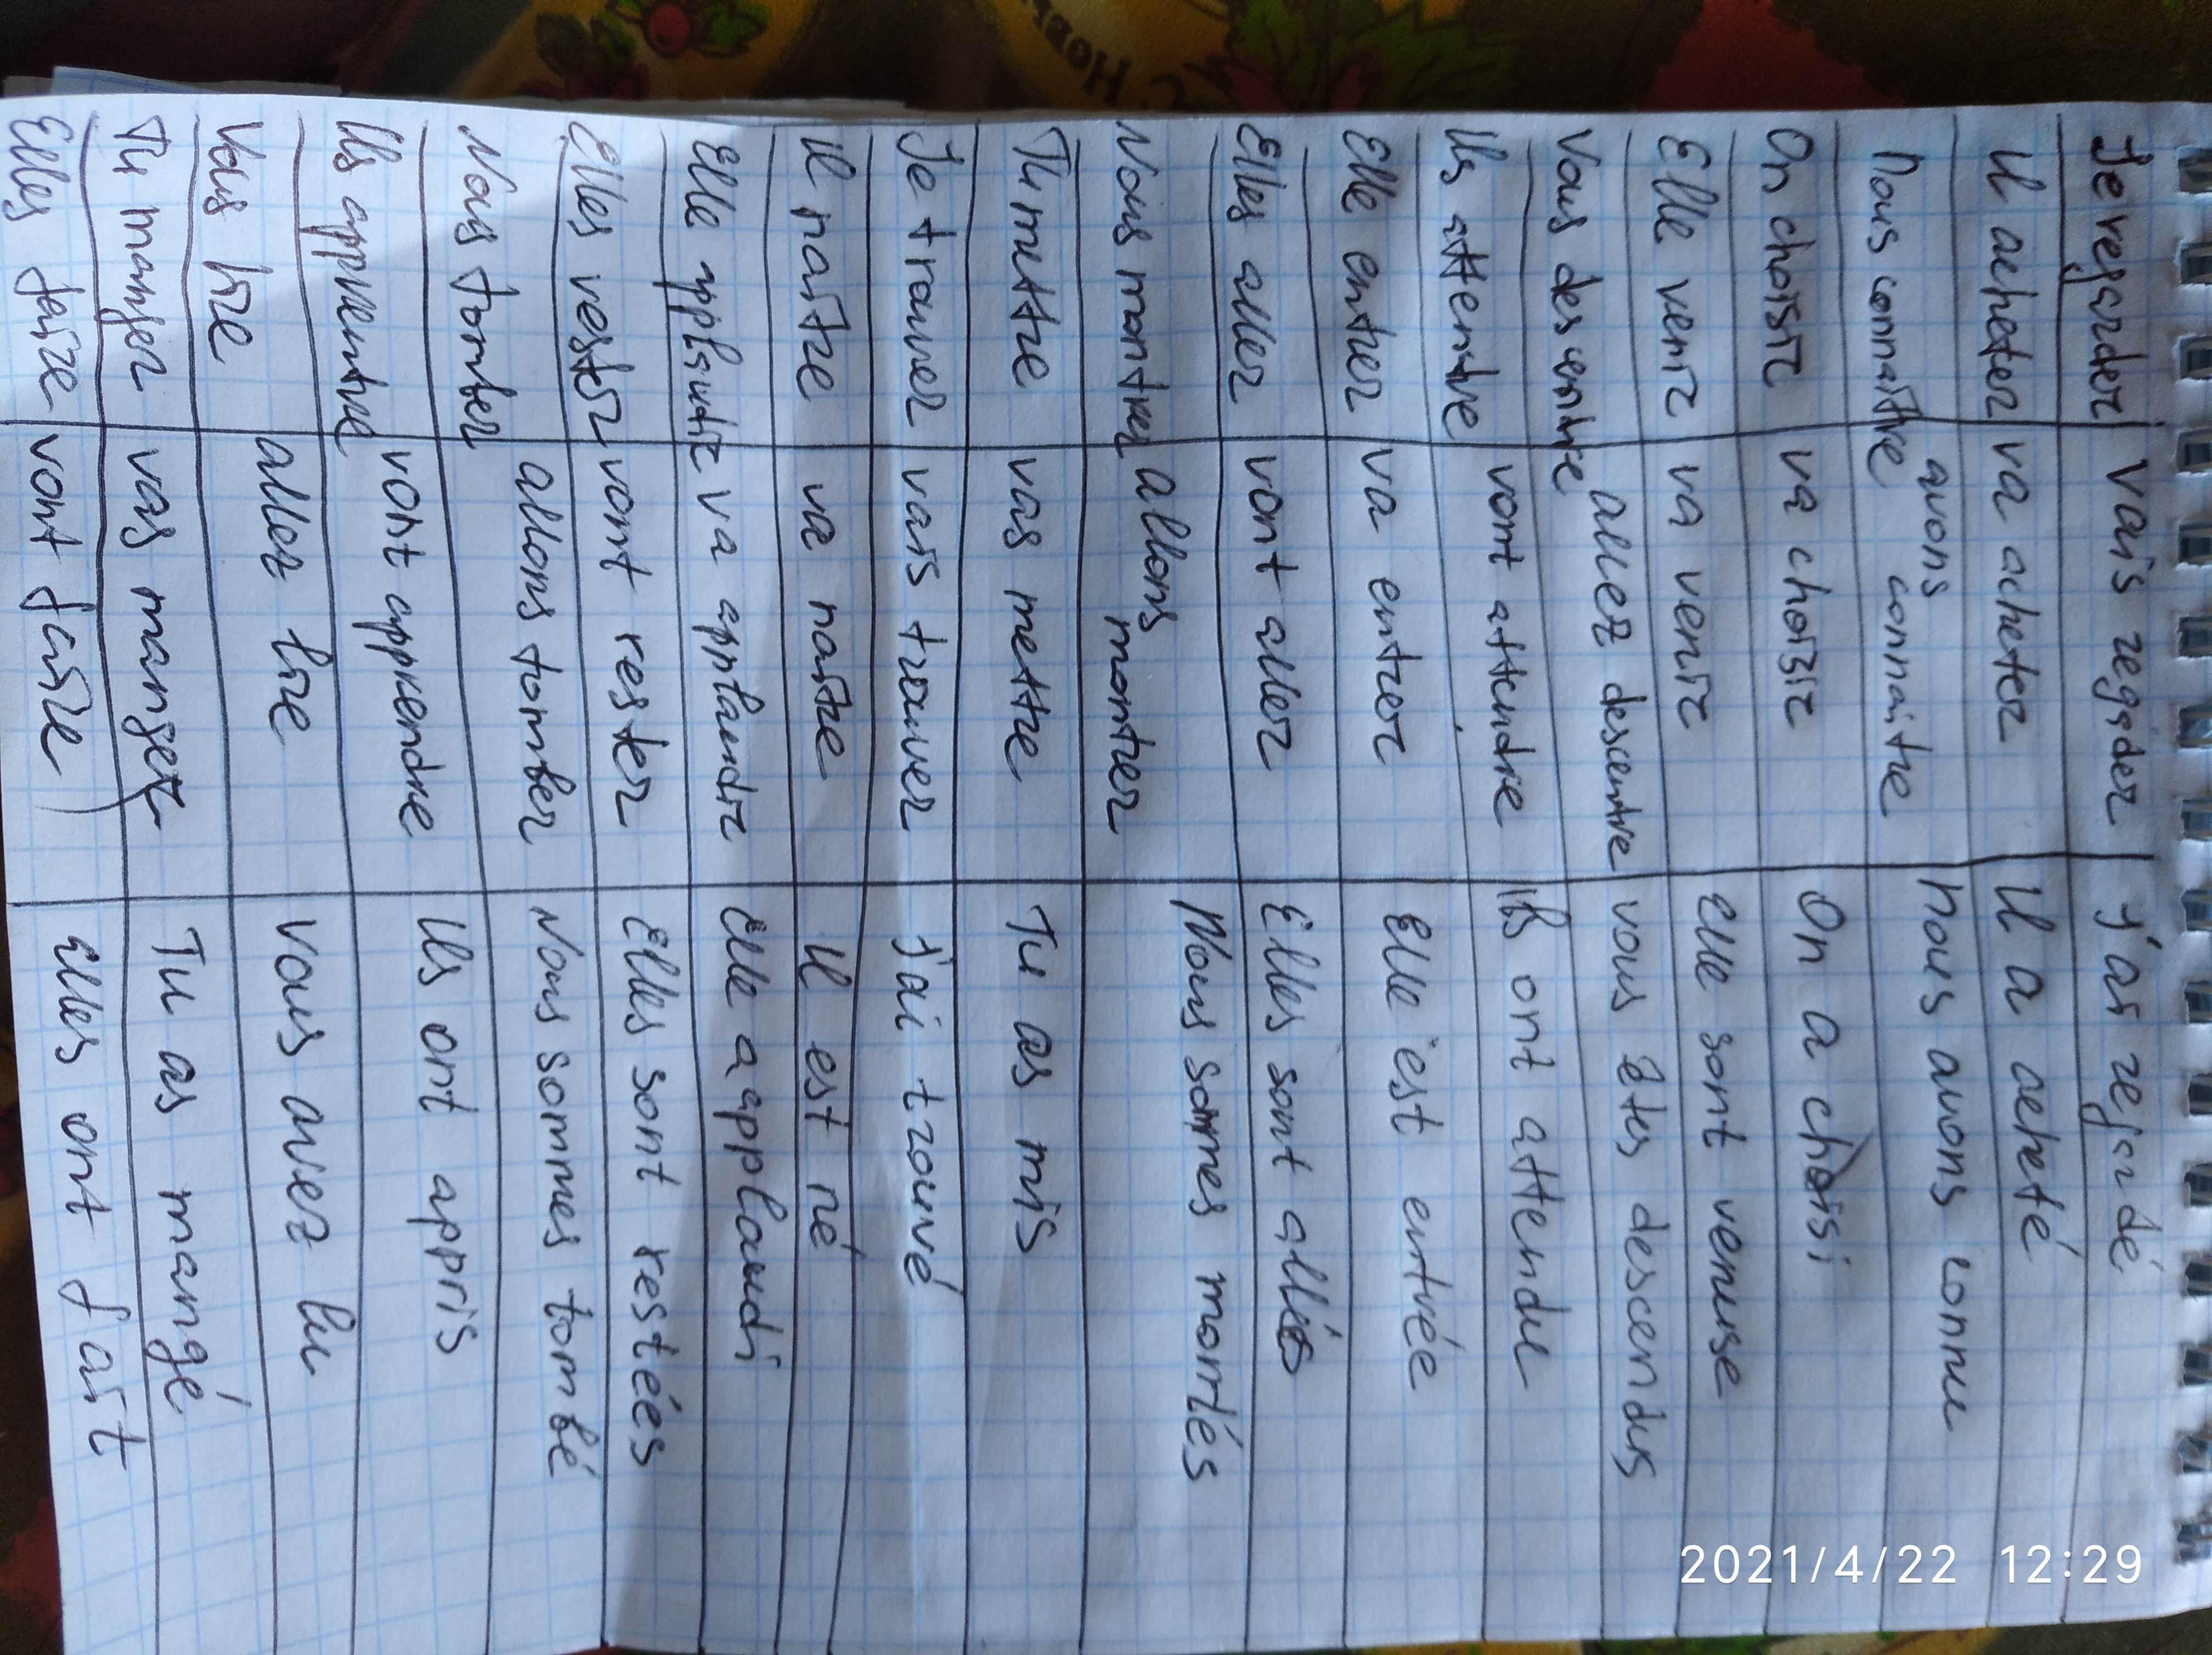 Je regarder vais regarder J'ai regardé
Il acheter va acheter Il a acheté
Nous connaître avons connaitre nous avons connu
On choisir va choisir On a choisi
Elle venir va venir elle sont venuse
Vous descendre allez descendre vous êtes descendus
Ils attendre vont attendre Ils ont attendu
Elle entrer va entrer Elle est entrée
Elles aller vont aller Elles sont allés
Nous montrer allons montrer Nous sommes montés
Tu mettre vas mettre Tu as mis
Je trouver vais trouver J'ai trouvé
Il naitre va naitre Il est né
Elle applaudir va applaudir Elle a applaudi
Elles rester vont rester Elles sont restées
Nous tomber allons tomber Nous sommes tombé
Ils apprendre vont apprendre Ils ont appris
Vous lire allez lire Vous avez lu
Tu manger vas manger Tu as mangé
Elles faire vont faire Elles ont fait
2021/4/22 12:29